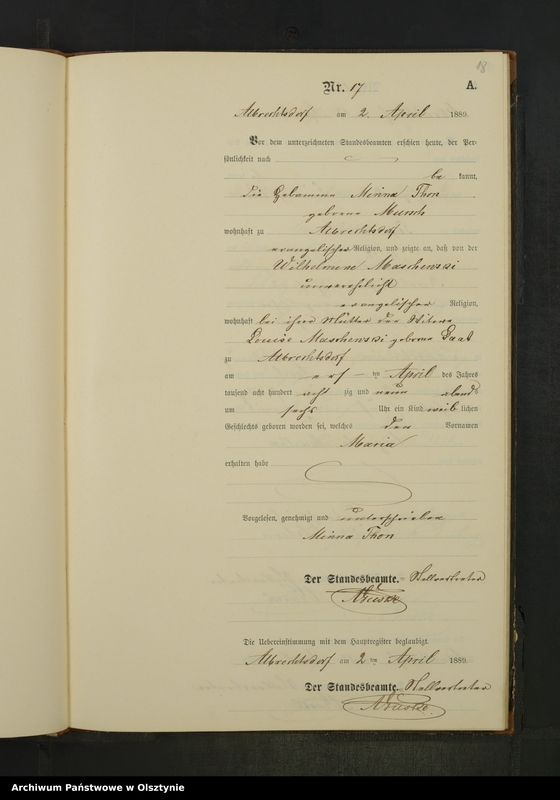 18
Nr. 17 A.
Albrechtsdorf am 2. April 1889.
Vor dem unterzeichneten Standesbeamten erschien heute, der Per-
sönlichkeit nach
be kannt,
die Hebamme Minna Thon
geborene Munsch
wohnhaft zu Albrechtsdorf
evangelischer Religion, und zeigte an, daß von der
Wilhelmine Maschewski
unverehelicht
evangelischer Religion,
wohnhaft bei ihrer Mutter der Witwe
Louise Maschewski geborene
zu Albrechtsdorf
am ten April des Jahres
tausend acht hundert acht zig und neun abends
um sechs Uhr ein Kind weib lichen
Geschlechts geboren worden sei, welches den Vornamen
Maria
erhalten habe
Vorgelesen, genehmigt und unterschrieben
Minna Thon
Der Standesbeamte. Stellvertreter
Die Uebereinstimmung mit dem Hauptregister beglaubigt.
Albrechtsdorf am 2 ten April 1889.
Der Standesbeamte. Stellvertreter
Archiwum Państwowe w Olsztynie